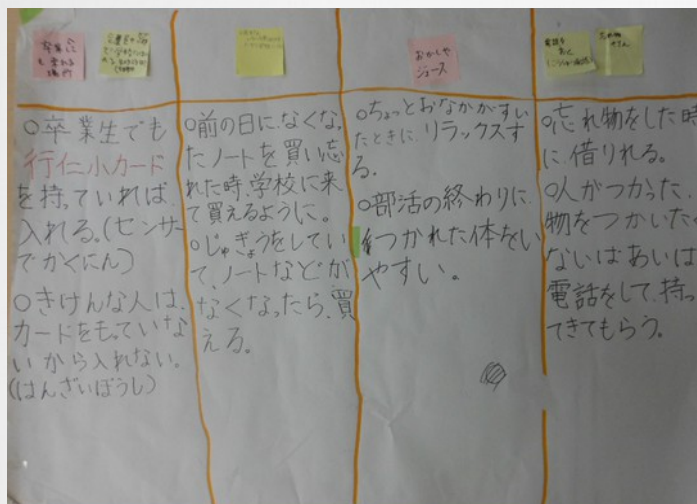 卒業ご
も来れる
場所
おかしや
ジュース
電話を
おく
忘れ物
○卒業生でも
行仁小カード
を持っていれば、
入れる。(センサー
でかくにん)
○きけんな人は、
カードをもっていな
いから入れない。
(はんざいぼうし)
○前の日に、なくなっ
たノートを買い忘
れた時、学校に来
て買えるように。
○じゅぎょうをしてい
て、ノートなどが
なくなったら、買
える。
○ちょっとおなかがすい
たときに、リラックスす
る。
○部活の終わりに、
つかれた体をい
やすい。
○忘れ物をした時
に、借りれる。
○人がつかった
物をつかいたく
ないばあいは
電話をして、持っ
てきてもらう。